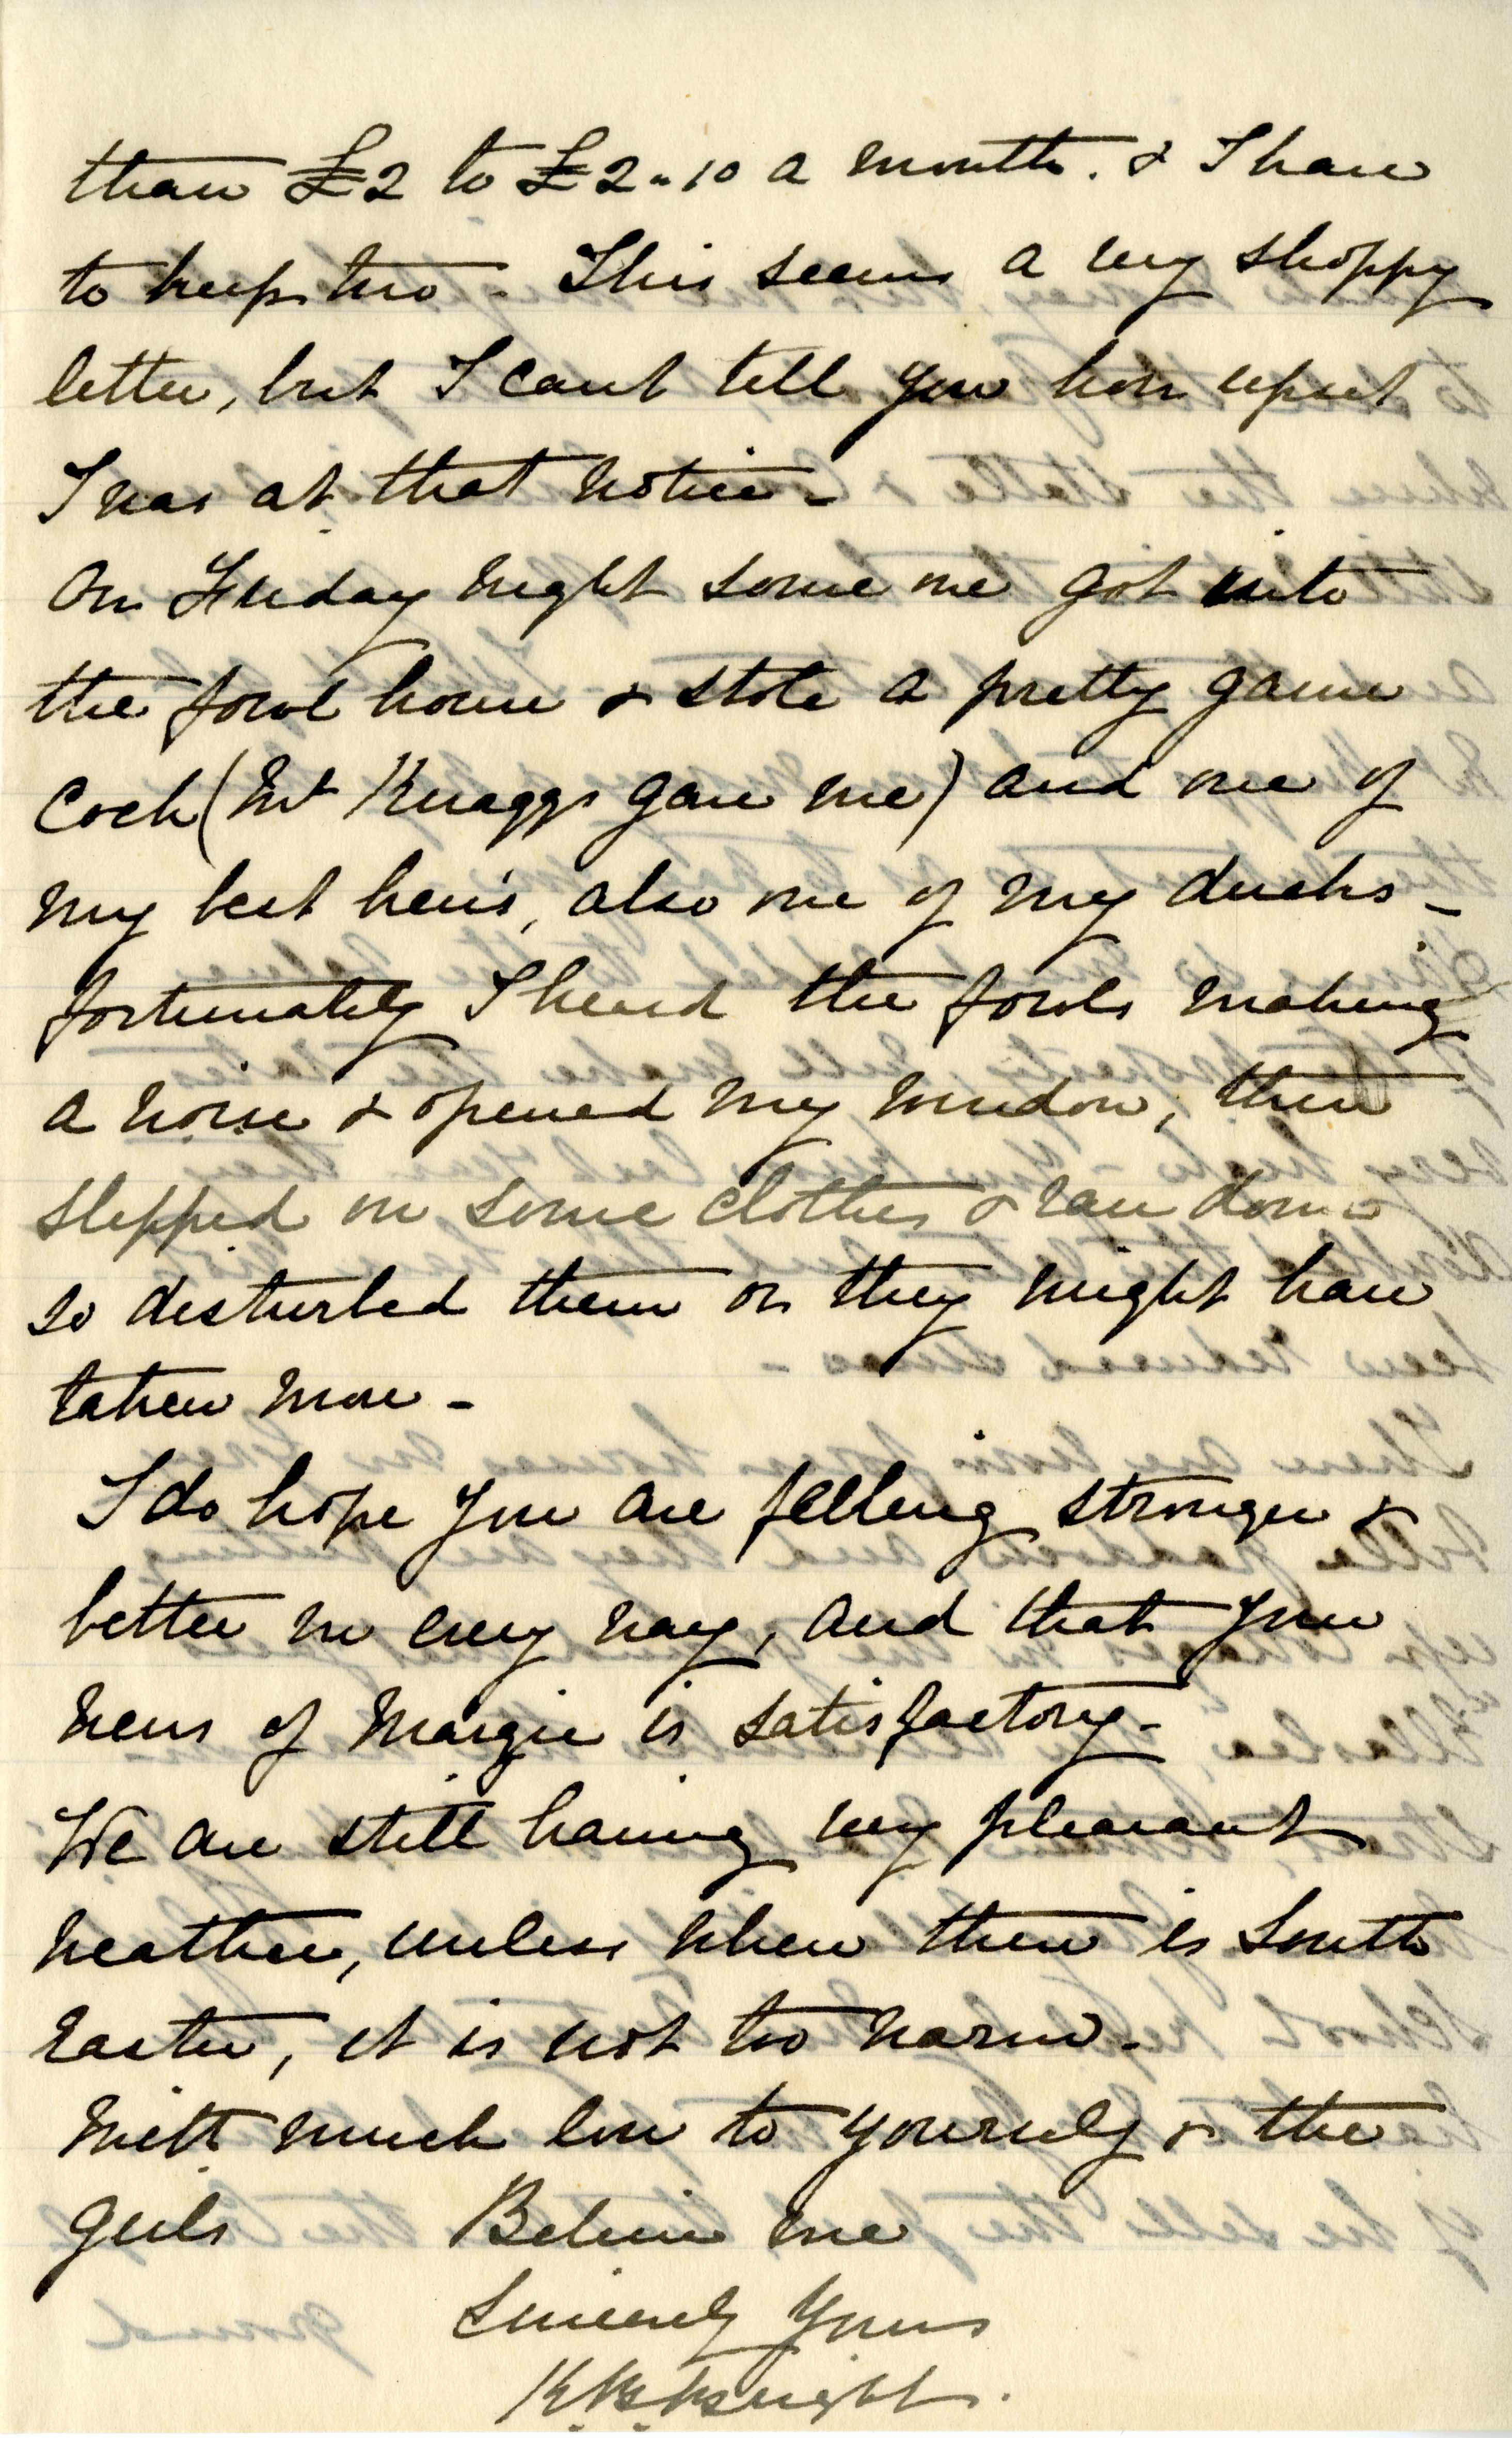 than £2 to £2-10 a month. & I have
to keep two - This seems a very shoppy
letter, but I cant tell you how upset
I was at that notice -
On Friday night some one got into
the fowl house & stole a pretty game
Cock (Mr Knaggs gave me) and one of
my best hens, also one of my ducks -
fortunately I heard the fowls making
a noise & opened my window, then
slipped on some clothes & ran down
so disturbed them or they might have
taken more -
I do hope you are felling stronger &
better in every way, and that your
news of Margie is satisfactory -
We are still having very pleasant
weather, unless when there is South
Easter, it is not too warm -
With much love to yourself & the
girls Believe me
Sincerely Yours
K.B. Knight.